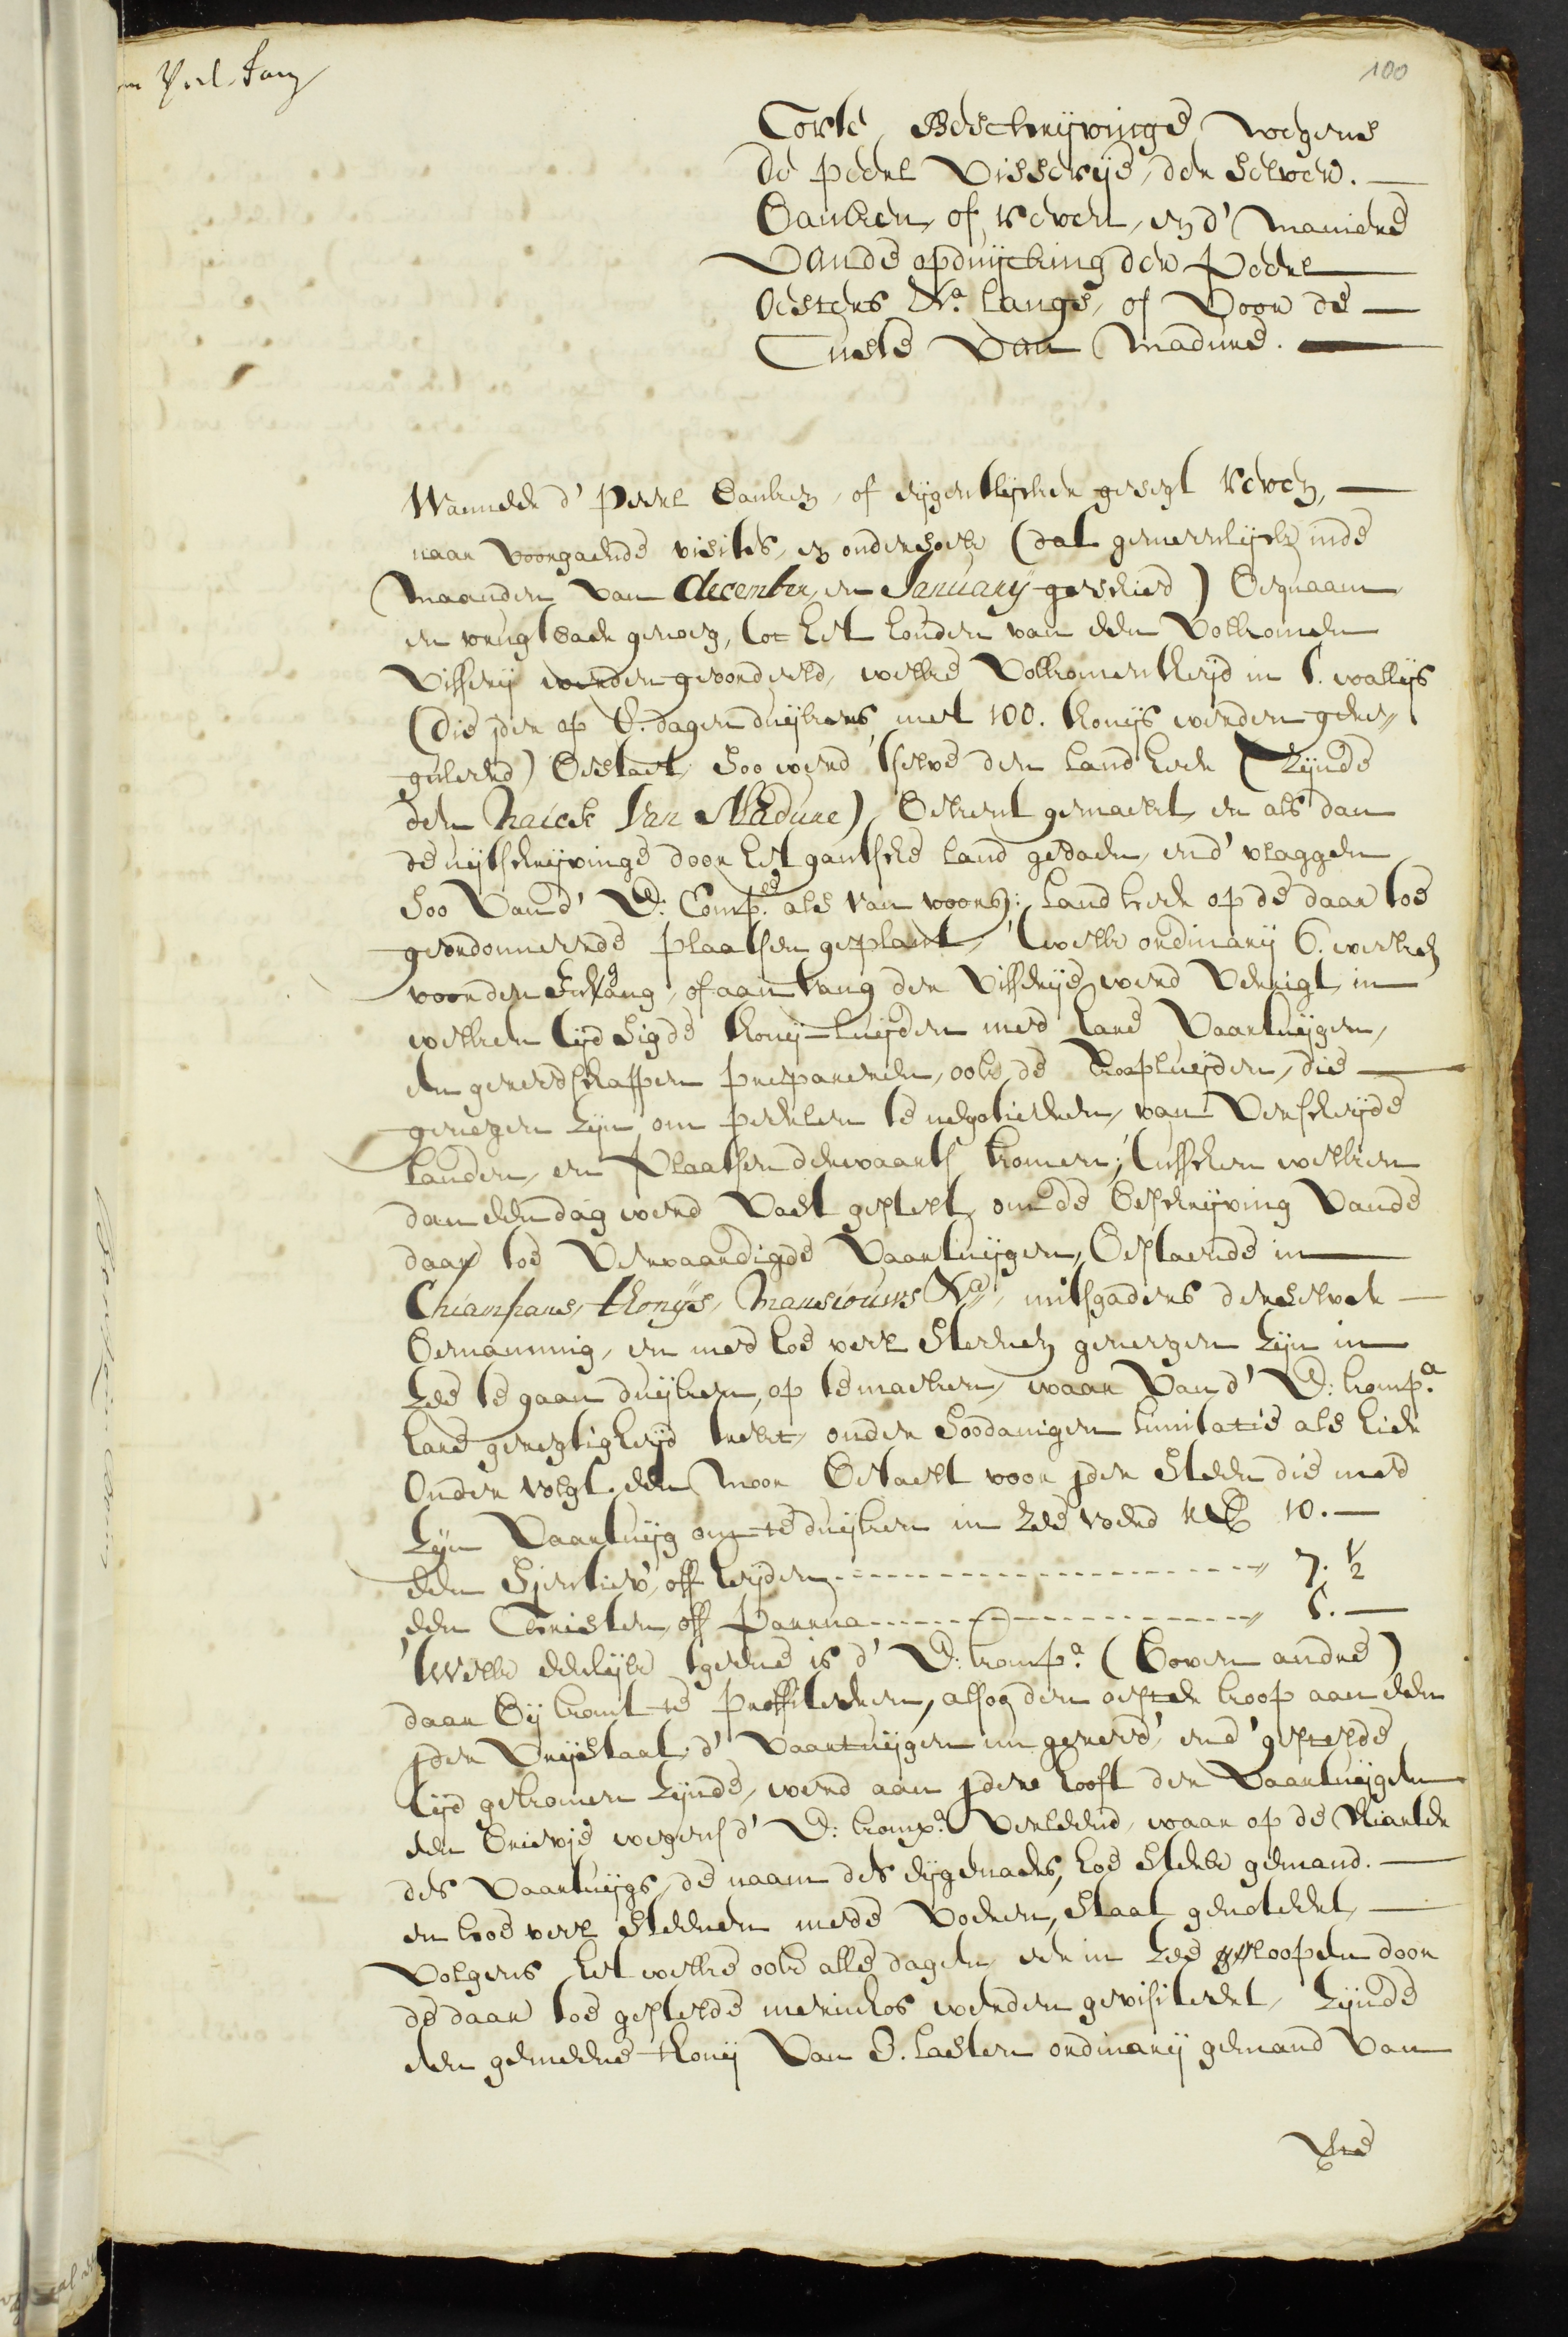 100
Corte Beschrijvinge, wegens
de peerl Visserije, der selver.
Banken, of reven, en d' maniere
vande opduijcking der Peerl
Oesters &a. langs, of voor de
Custe van Madure.
Wanneer d' peerl banken, of eijgentlijcker gesegt reven,
naar voorgaende visites, en ondersoek (dat gemeenlijck inde
maanden van december, en Januarij geschied) bequaam
en vrugtbaer genoeg, tot het houden van een volkomen
visserij werden geoordeeld, welke volkomentheijd in
(die jder op 8. dagen duijkens met 100. thonijs werden gere„
guleerd) bestaet, soo werd 'tselve den landheer (zijnde
den Naick van Madure) bekent gemaekt, en als dan
de uijtschrijvinge door het gantsche land gedaen, en d' vlaggen
soo van d' E: Comp.e als van voorn: landheer op de daar toe
geordonneerde plaatsen geplant, 't welk ordinarij 6. weeken
voor den of aanvang der visserije werd verrigt, in
welken tijd sig de thonij-luijden met hare vaartuijgen,
en gereedschappen prepareren, ook de Kooplieden, die
genegen zijn om peerlen te negotieeren, van verscheijde
landen, en plaatsen derwaarts komen; tusschen welken
dan een dag werd vast gestelt, om de beschrijving vande
daar toe vervaardigde vaartuijgen, bestaende in
Chiampans, thonijs, Mansiouws &a., mitsgaders derselver
bemanning, en med hoe veel steenen genegen zijn in
zee te gaan duijken, op te maeken, waar van d' E: Komp.a
hare geregtigheijd trekt, onder soodanigen limitatie als hier
onder volgt. een Moor betaelt voor jder steen die med
zijn vaartuijg om te duijken in zee voerd 10.—
een of heijden „ 7. ½
een Christen, off Parrua „
'twelk eerlijk tgeene is d' E: komp.a (boven andre)
daar bij komt te proffiteeren, alsoo den oester koop aan een
jder vrijstaat, d' vaartuijgen nu gereed, en d' gestelde
tijd gekomen zijnde, werd aan jdere hooft der vaartuijgen
een briefje wegens d' E: komp.a verleend, waar op de
des vaartuijgs, de naam des eijgenaers, hoe sterk gemand.
en hoe veel steenen mede voeren, staat genoteert,
volgens het welke ook alle dagen, eer in zee loopen door
de daar toe gestelde werden gevisiteert, zijnde
een gemeene thonij van 8. lasten ordinarij gemand van